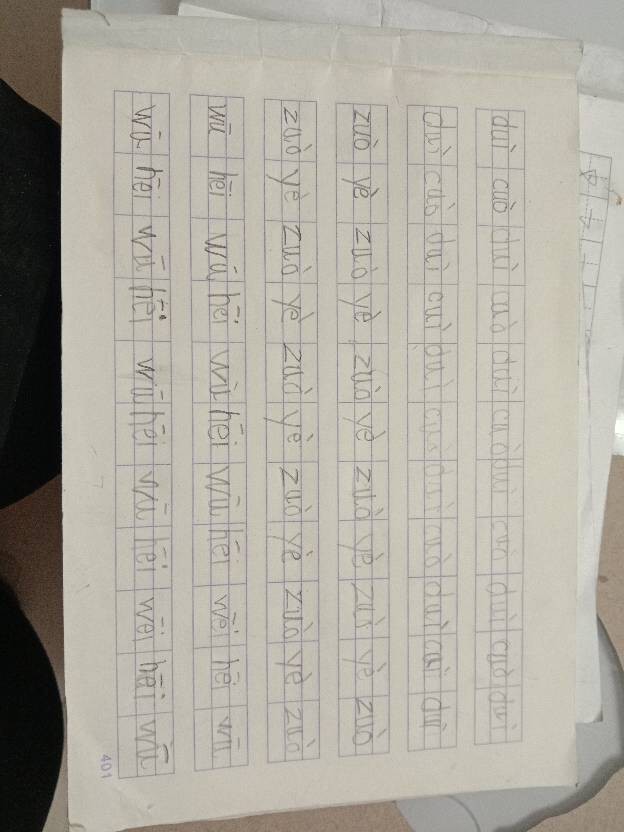 duì cuò duì cuò duì cuò duì cuò duì cuò duì
duì cuò duì cuì duì cuò duì cuò duì cuì duì
zuò yè zuò yè zuò yè zuò yè zuò yè zuò
zuò yè zuò yè zuò yè zuò yè zuò yè zuò
wū hēi wū hēi wū hēi wū hēi wēi hēi wū
wū hēi wū hēi wū hēi wū hēi wēi hēi wū
401